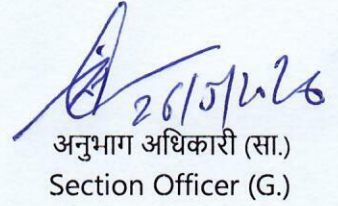 26/5/2026
अनुभाग अधिकारी (सा.)
Section Officer (G.)